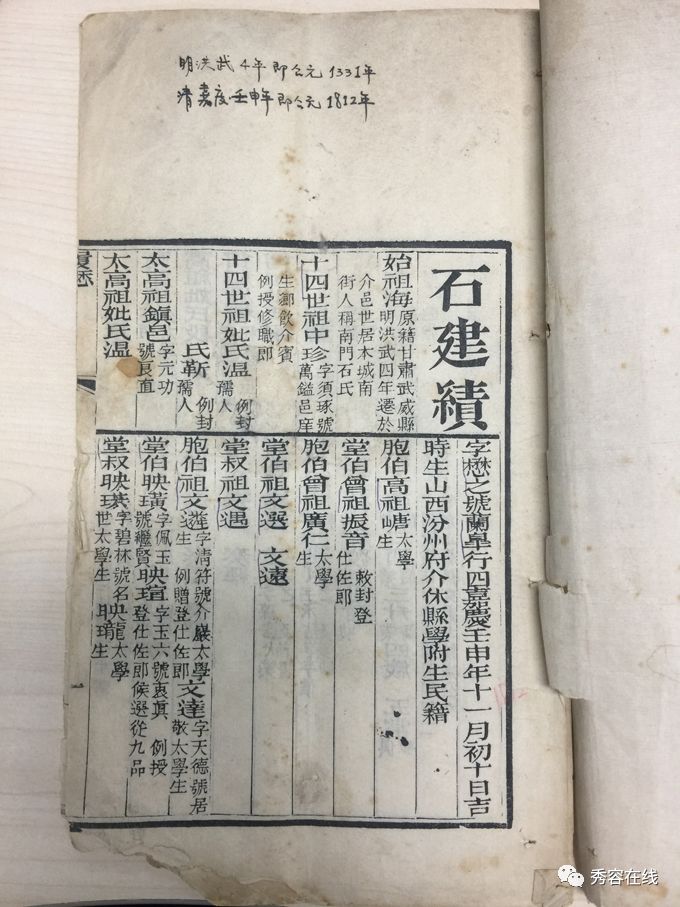 明洪武4年即公元1331年
清嘉庆壬申年即公元1812年
石建績
字懋之號蘭臯行四嘉慶壬申年十一月初十日吉
時生山西汾州府介休縣學附生民籍
始祖海原籍甘肅武威縣
明洪武四年遷於
介邑世居木城南
街人稱南門石氏
十四世祖中珍字須琢號
萬鎰邑庠
生鄉飲介賓
例授修職郎
十四世祖妣氏溫例封
孺人
氏靳例封
孺人
太高祖鎮邑字元功
號良直
太高祖妣氏溫
胞伯高祖塘太學
生
堂伯曾祖振音敕封登
仕佐郎
胞伯曾祖廣仁太學
生
堂伯祖文選 文遠
堂叔祖文遇
胞伯祖文蓰字清符號介巖太學
生 例贈登仕佐郎
文達字天德號居
敬太學生
堂伯映黃字佩玉
號繼賢
映瑄字玉六號衷眞 例授
登仕佐郎候選從九品
堂叔映琪字碧林號名
世太學生
映龍太學
生
秀容在线